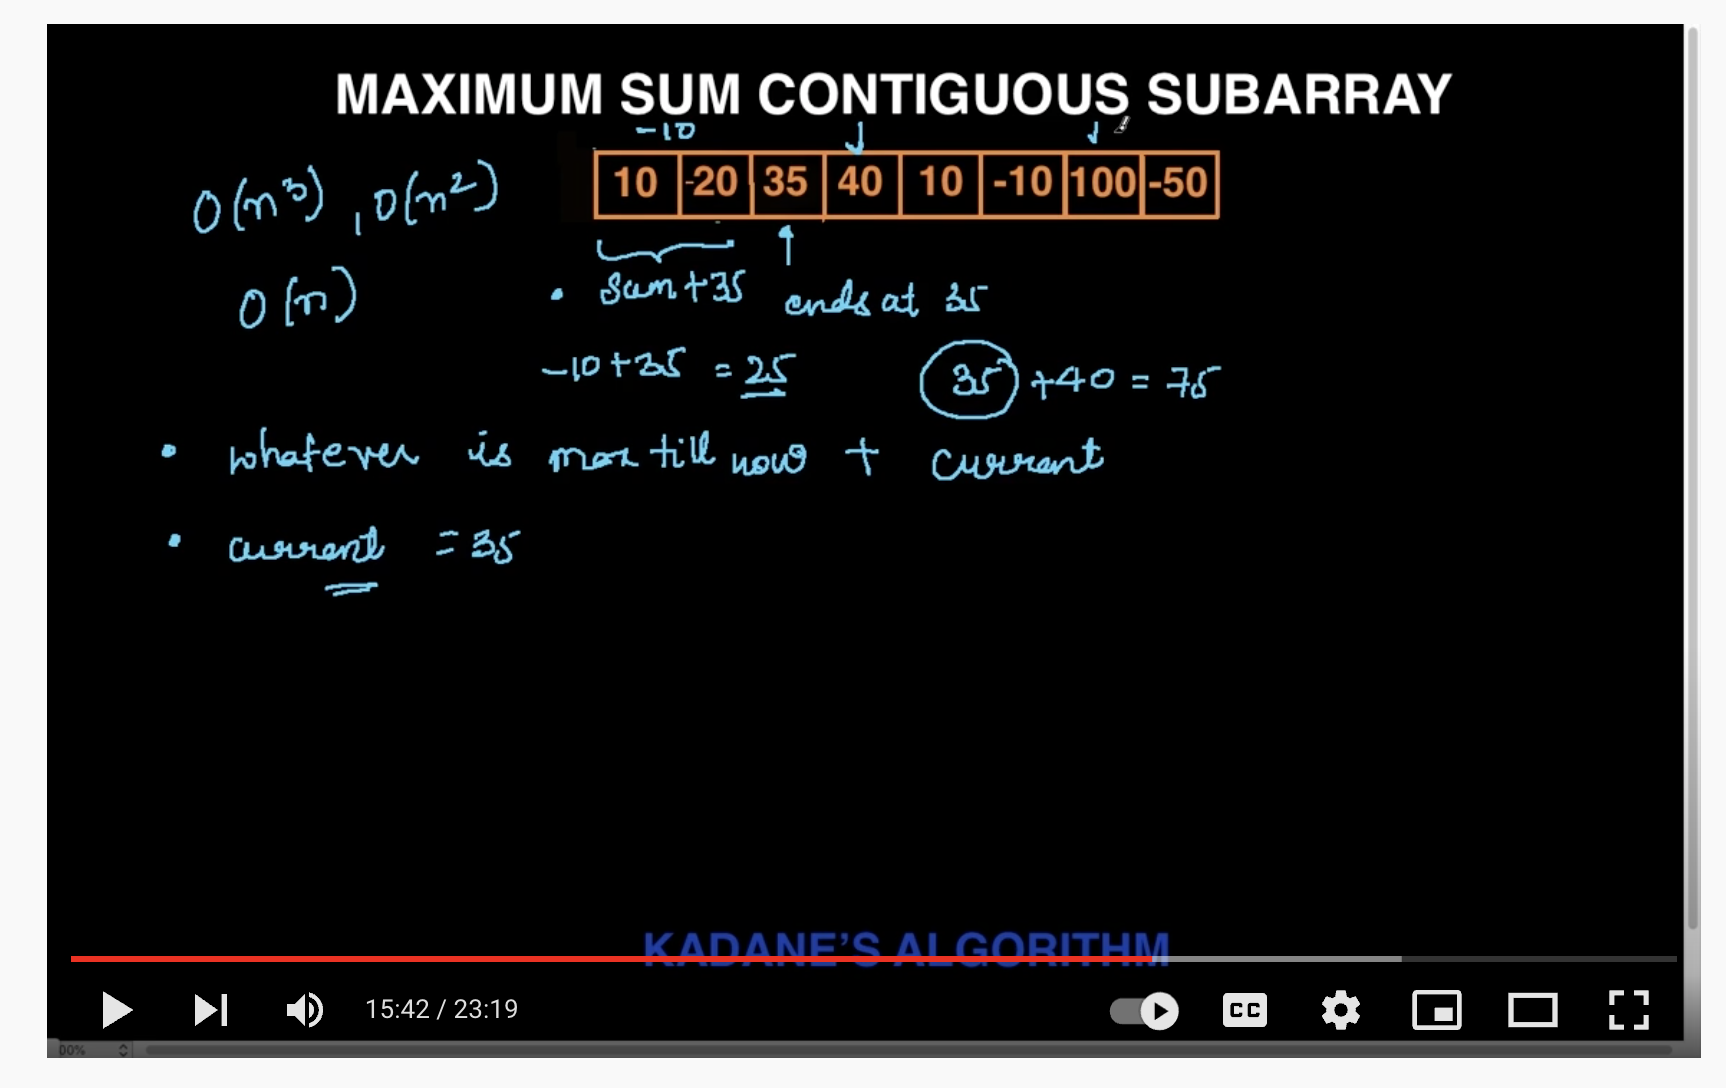 MAXIMUM SUM CONTIGUOUS SUBARRAY
-10
10 -20 35 40 10 -10 100 -50
O(n³), O(n²)
O(n)
• Sum+35 ends at 35
-10+35 = 25 35 +40 = 75
• whatever is max till now + current
• current = 35
KADANE'S ALGORITHM
15:42 / 23:19
CC
00%